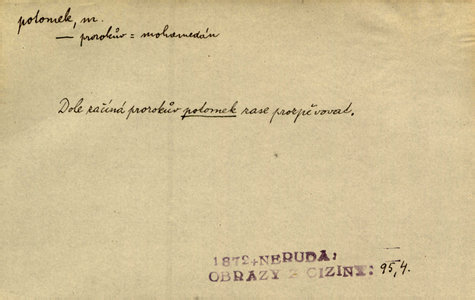 potomek, m.
— prorokův = mohamedán
Dole začíná prorokův potomek zase prozpěvovat.
1872+NERUDA:
OBRAZY Z CIZINY: 95,4.